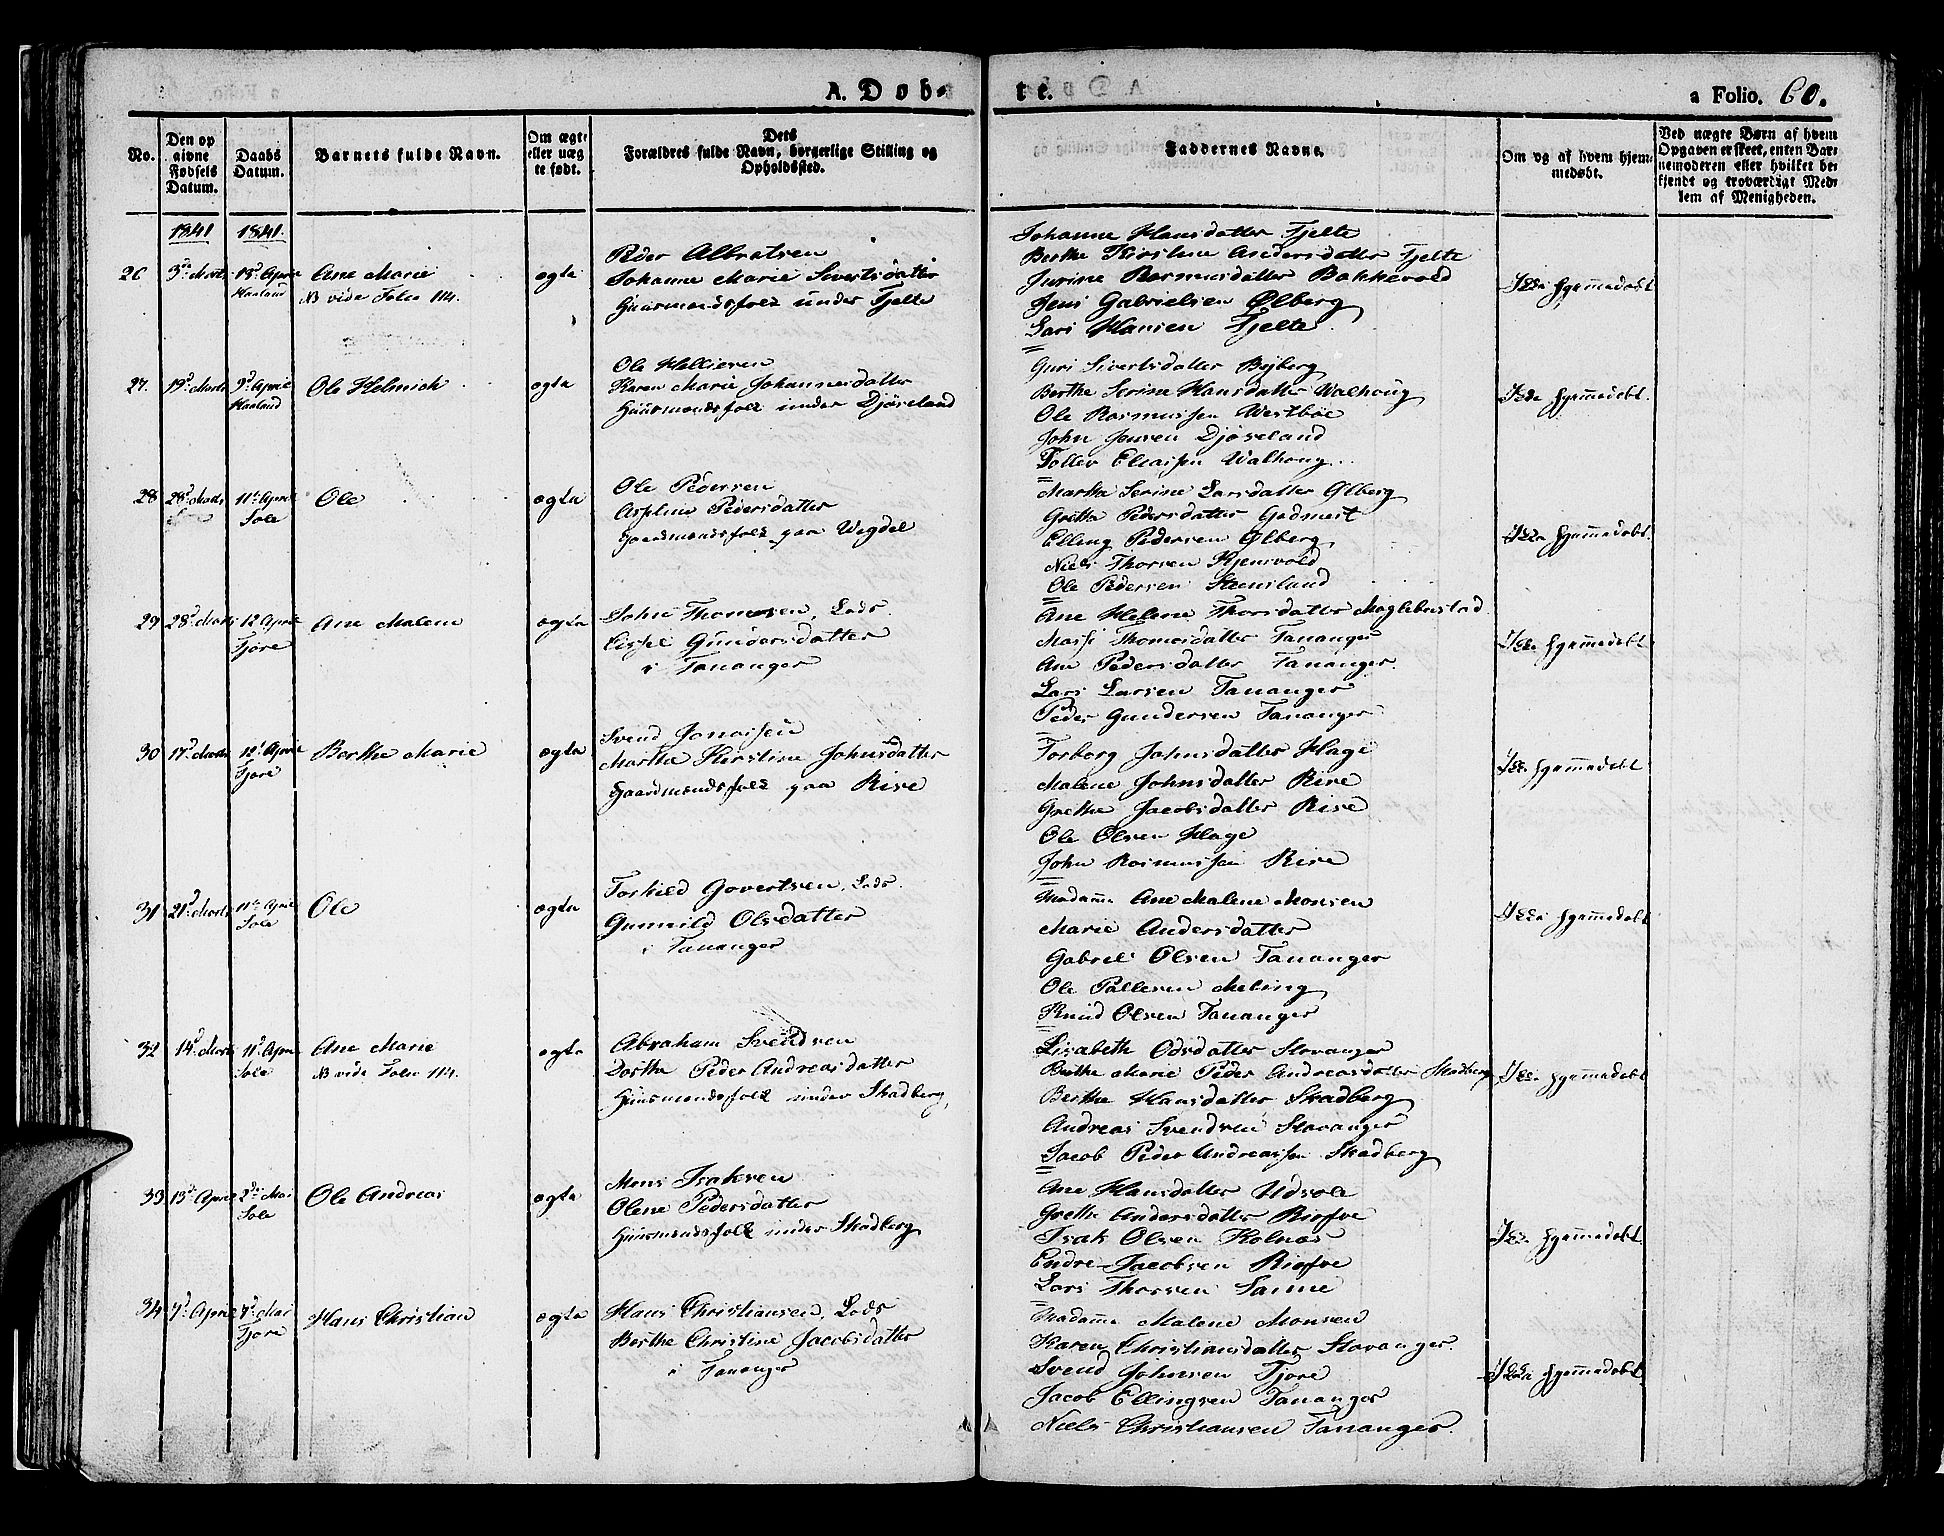 A. Døb-
te.
a Folio. 60.
No.
Den op
givne
Fødsels
Datum.
Daabs
Datum.
Barnets fulde Navn.
Om ægte
eller uæg
te født.
Dets
Forældres fulde Navn, borgerlige Stilling og
Opholdssted.
Faddernes Navne.
Om og af hvem hjem-
medøbt.
Ved uægte Børn af hvem
Opgaven er skeet, enten Bar-
nemoderen eller hvilket be-
kjendt og troværdigt Med-
lem af Menigheden.
1841 1841.
26 3de Marts 18de April Haaland
Ane Marie
NB vide Folio 114.
ægte
Peder Albretsen
Johanne Marie Sivertsdatter
Huusmandsfolk under Tjelte
Johanne Hansdatter Tjelte
Berthe Kirstine Andersdatter Tjelte
Jurine Rasmusdatter Bakkevold
Jens Gabrielsen Ølberg
Lars Hansen Tjelte
Ikke hjemmedøbt
27. 19d Marts 9d April Haaland
Ole Helmich
ægte
Ole Hellieren
Karen Marie Johannesdatter
Huusmandsfolk under Djøseland
Guri Sivertsdatter Byberg
Berthe Serine Hansdatter Walhoug
Ole Rasmussen Westbøe
John Jonsen Djøseland
Tollev Eliassen Walhoug
Ikke hjemmedøbt.
28 28d Marts 11d April Sole
Ole
ægte
Ole Pedersen
Asplene Pedersdatter
Gaardmandsfolk paa Wigdel
Martha Serine Larsdatter Ølberg
Grethe Pedersdatter
Elling Pedersen Ølberg
Niels Thorsen
Ole Pedersen Stensland
Ikke hjemmedøbt.
29 28d Marts 12 April Tjore
Ane Malene
ægte
John Thomesen, Lods
Cissel Gundersdatter
i Tananger
Ane Helene Thorsdatter Maglebustad
Massi Thomesdatter Tananger
Ane Pedersdatter Tananger
Lars Larsen Tananger
Peder Gundersen Tananger
Ikke hjemmedøbt
30 17d Marts 12d April Tjore
Berthe Marie
ægte
Svend Jonassen
Martha Kierstine Johnsdatter
Gaardmandsfolk paa Risse
Torborg Johnsdatter Hage
Malene Johnsdatter Risse
Grethe Jacobsdatter Risse
Ole Olsen Hage
John Rasmussen Risse
Ikke hjemmedøbt
31 21d Marts 11te April Sole
Ole
ægte
Torkild Govertsen, Lods.
Gunnild Olsdatter
i Tananger
Madamme Ane Malene Monsen
Marie Andersdatter
Gabriel Olsen Tananger
Ole Pallesen Meling
Knud Olsen Tananger
Ikke hjemmedøbt
32 14d Marts 11d April Sole
Ane Marie
NB vide Folio 114.
ægte
Abraham Svendsen
Dorthe Peder Andreasdatter
Huusmandsfolk under Skadberg
Lisabeth Odsdatter Stavanger
Berthe Marie Peder Andreasdatter Skadberg
Berthe Hansdatter Skadberg
Andreas Svendsen Stavanger
Jacob Peder Andreassen Skadberg
Ikke hjemmedøbt
33 13de April 2den Mai Sole
Ole Andreas
ægte
Mons Isaksen
Olene Pedersdatter
Huusmandsfolk under Skadberg
Ane Hansdatter Udsole
Grethe Andersdatter
Isak Olsen Kolnæs
Endre Jacobsen
Lars Thorsen Sanne
Ikke hjemmedøbt.
34 7d April 7d Mai Tjore
Hans Christian
ægte
Hans Christiansen, Lods
Berthe Christine Jacobsdatter
i Tananger
Madamme Malene Monsen
Karen Christiansdatter Stavanger.
Svend Johnsen Tjore
Jacob Ellingsen Tananger
Niels Christiansen Tananger.
Ikke hjemmedøbt